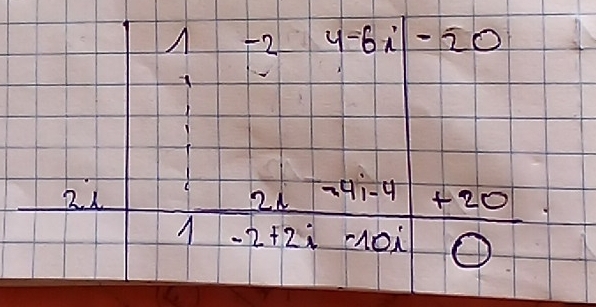 1 -2 4-6i -20
2i 2i -4i-4 +20
1 -2+2i -10i 0